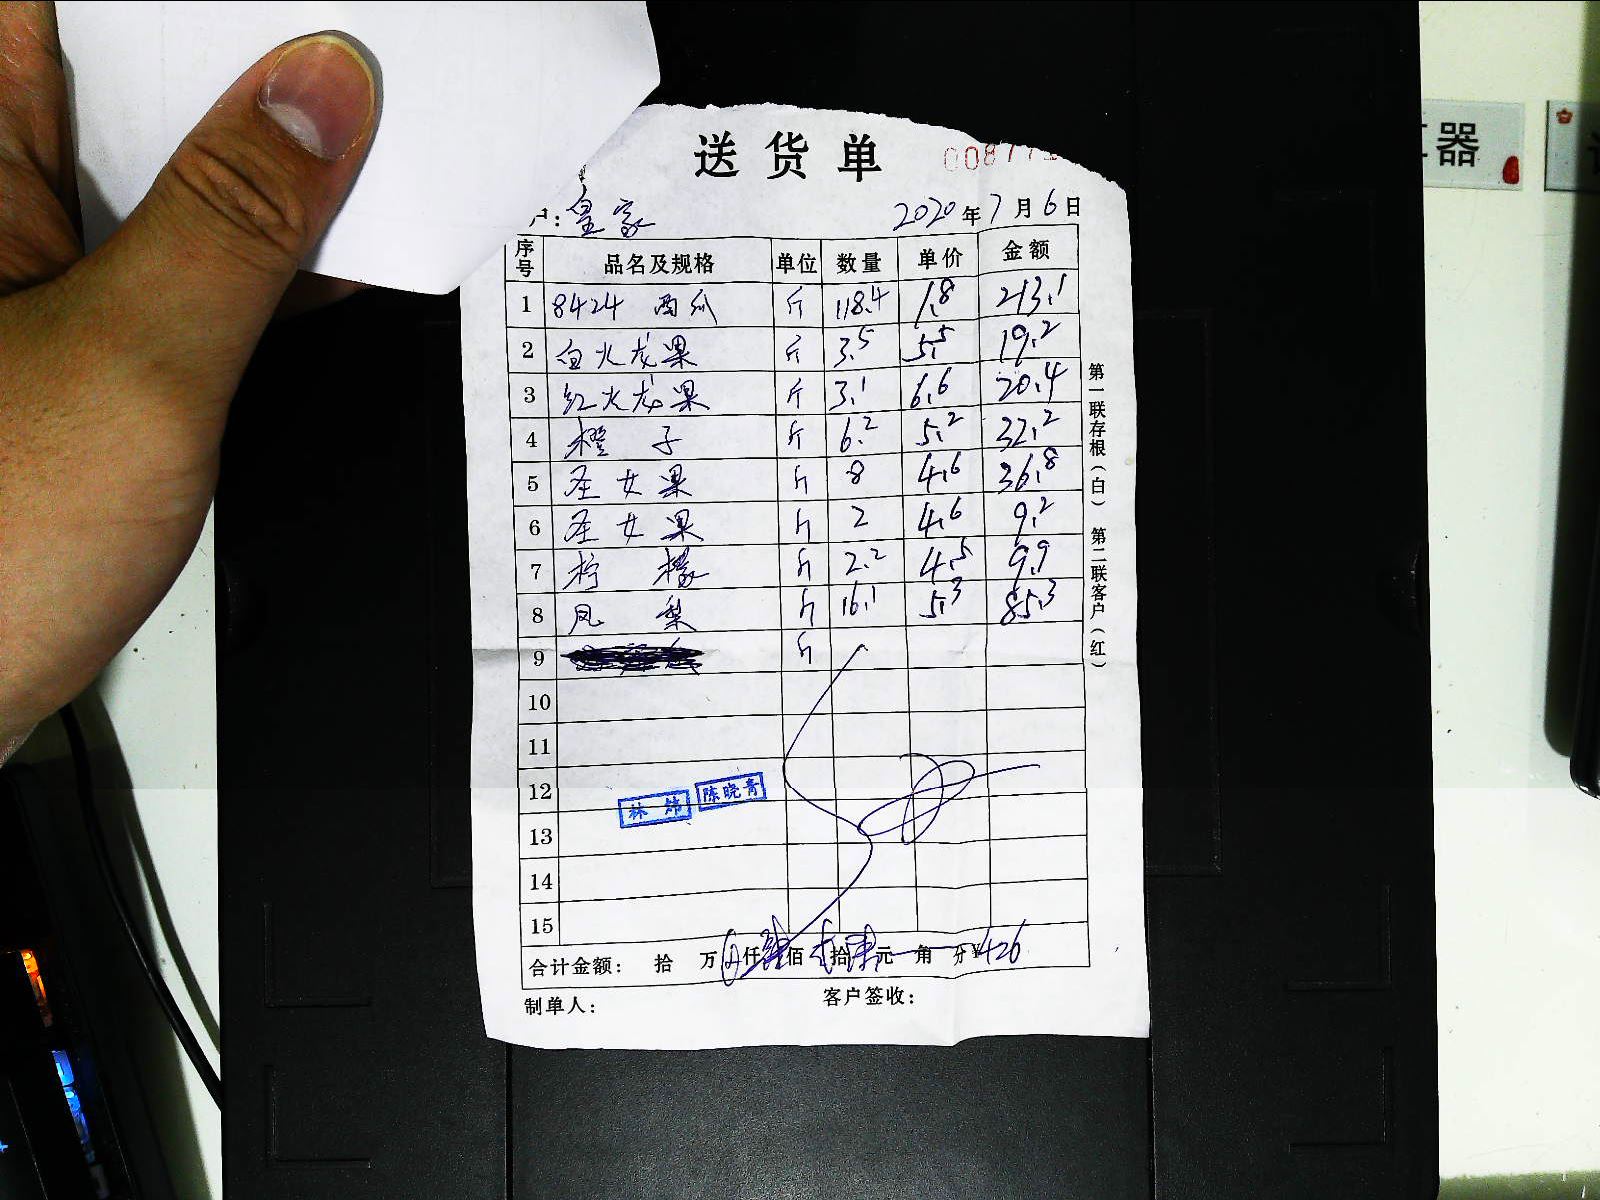 送货单 00877
户:皇家 2020年7月6日
序号 品名及规格 单位 数量 单价 金额
1 8424 西瓜 斤 118.4 1.8 213.1
2 白火龙果 斤 3.5 5.5 19.2
3 红火龙果 斤 3.1 6.6 20.4
4 橙子 斤 6.2 5.2 32.2
5 圣女果 斤 8 4.6 36.8
6 圣女果 斤 2 4.6 9.2
7 柠檬 斤 2.2 4.5 9.9
8 凤梨 斤 16.1 5.3 85.3
9 斤
10
11
12
林炜 陈晓青
13
14
15
合计金额: 拾 万 仟肆佰贰拾陆元 角 分¥426
制单人: 客户签收:
第一联存根(白) 第二联客户(红)
器